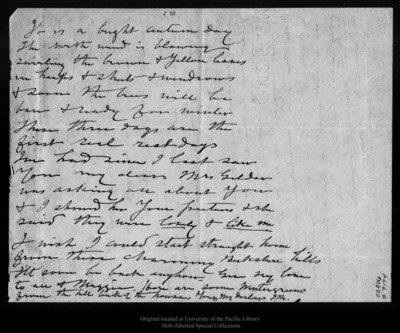 It is a bright autumn day
The north wind is blowing
swirling the brown & yellow leaves
in heaps & shels & windrows
& soon the trees will be
bare & ready for winter
These three days are the
first real rest days
Ive had since I last saw
You my dear Mrs Gilder
was asking all about You
& I showed her Your pictures & she
said they were lovely & like me
I wish I could start straight home
from these charming Berkshire hills
Ill soon be back anyhow Give my love
to all & Maggie Here are some wintergreens
from the hill back of the house Yours My Darlings J.M.
Original located at University of the Pacific Library
Holt-Atherton Special Collections